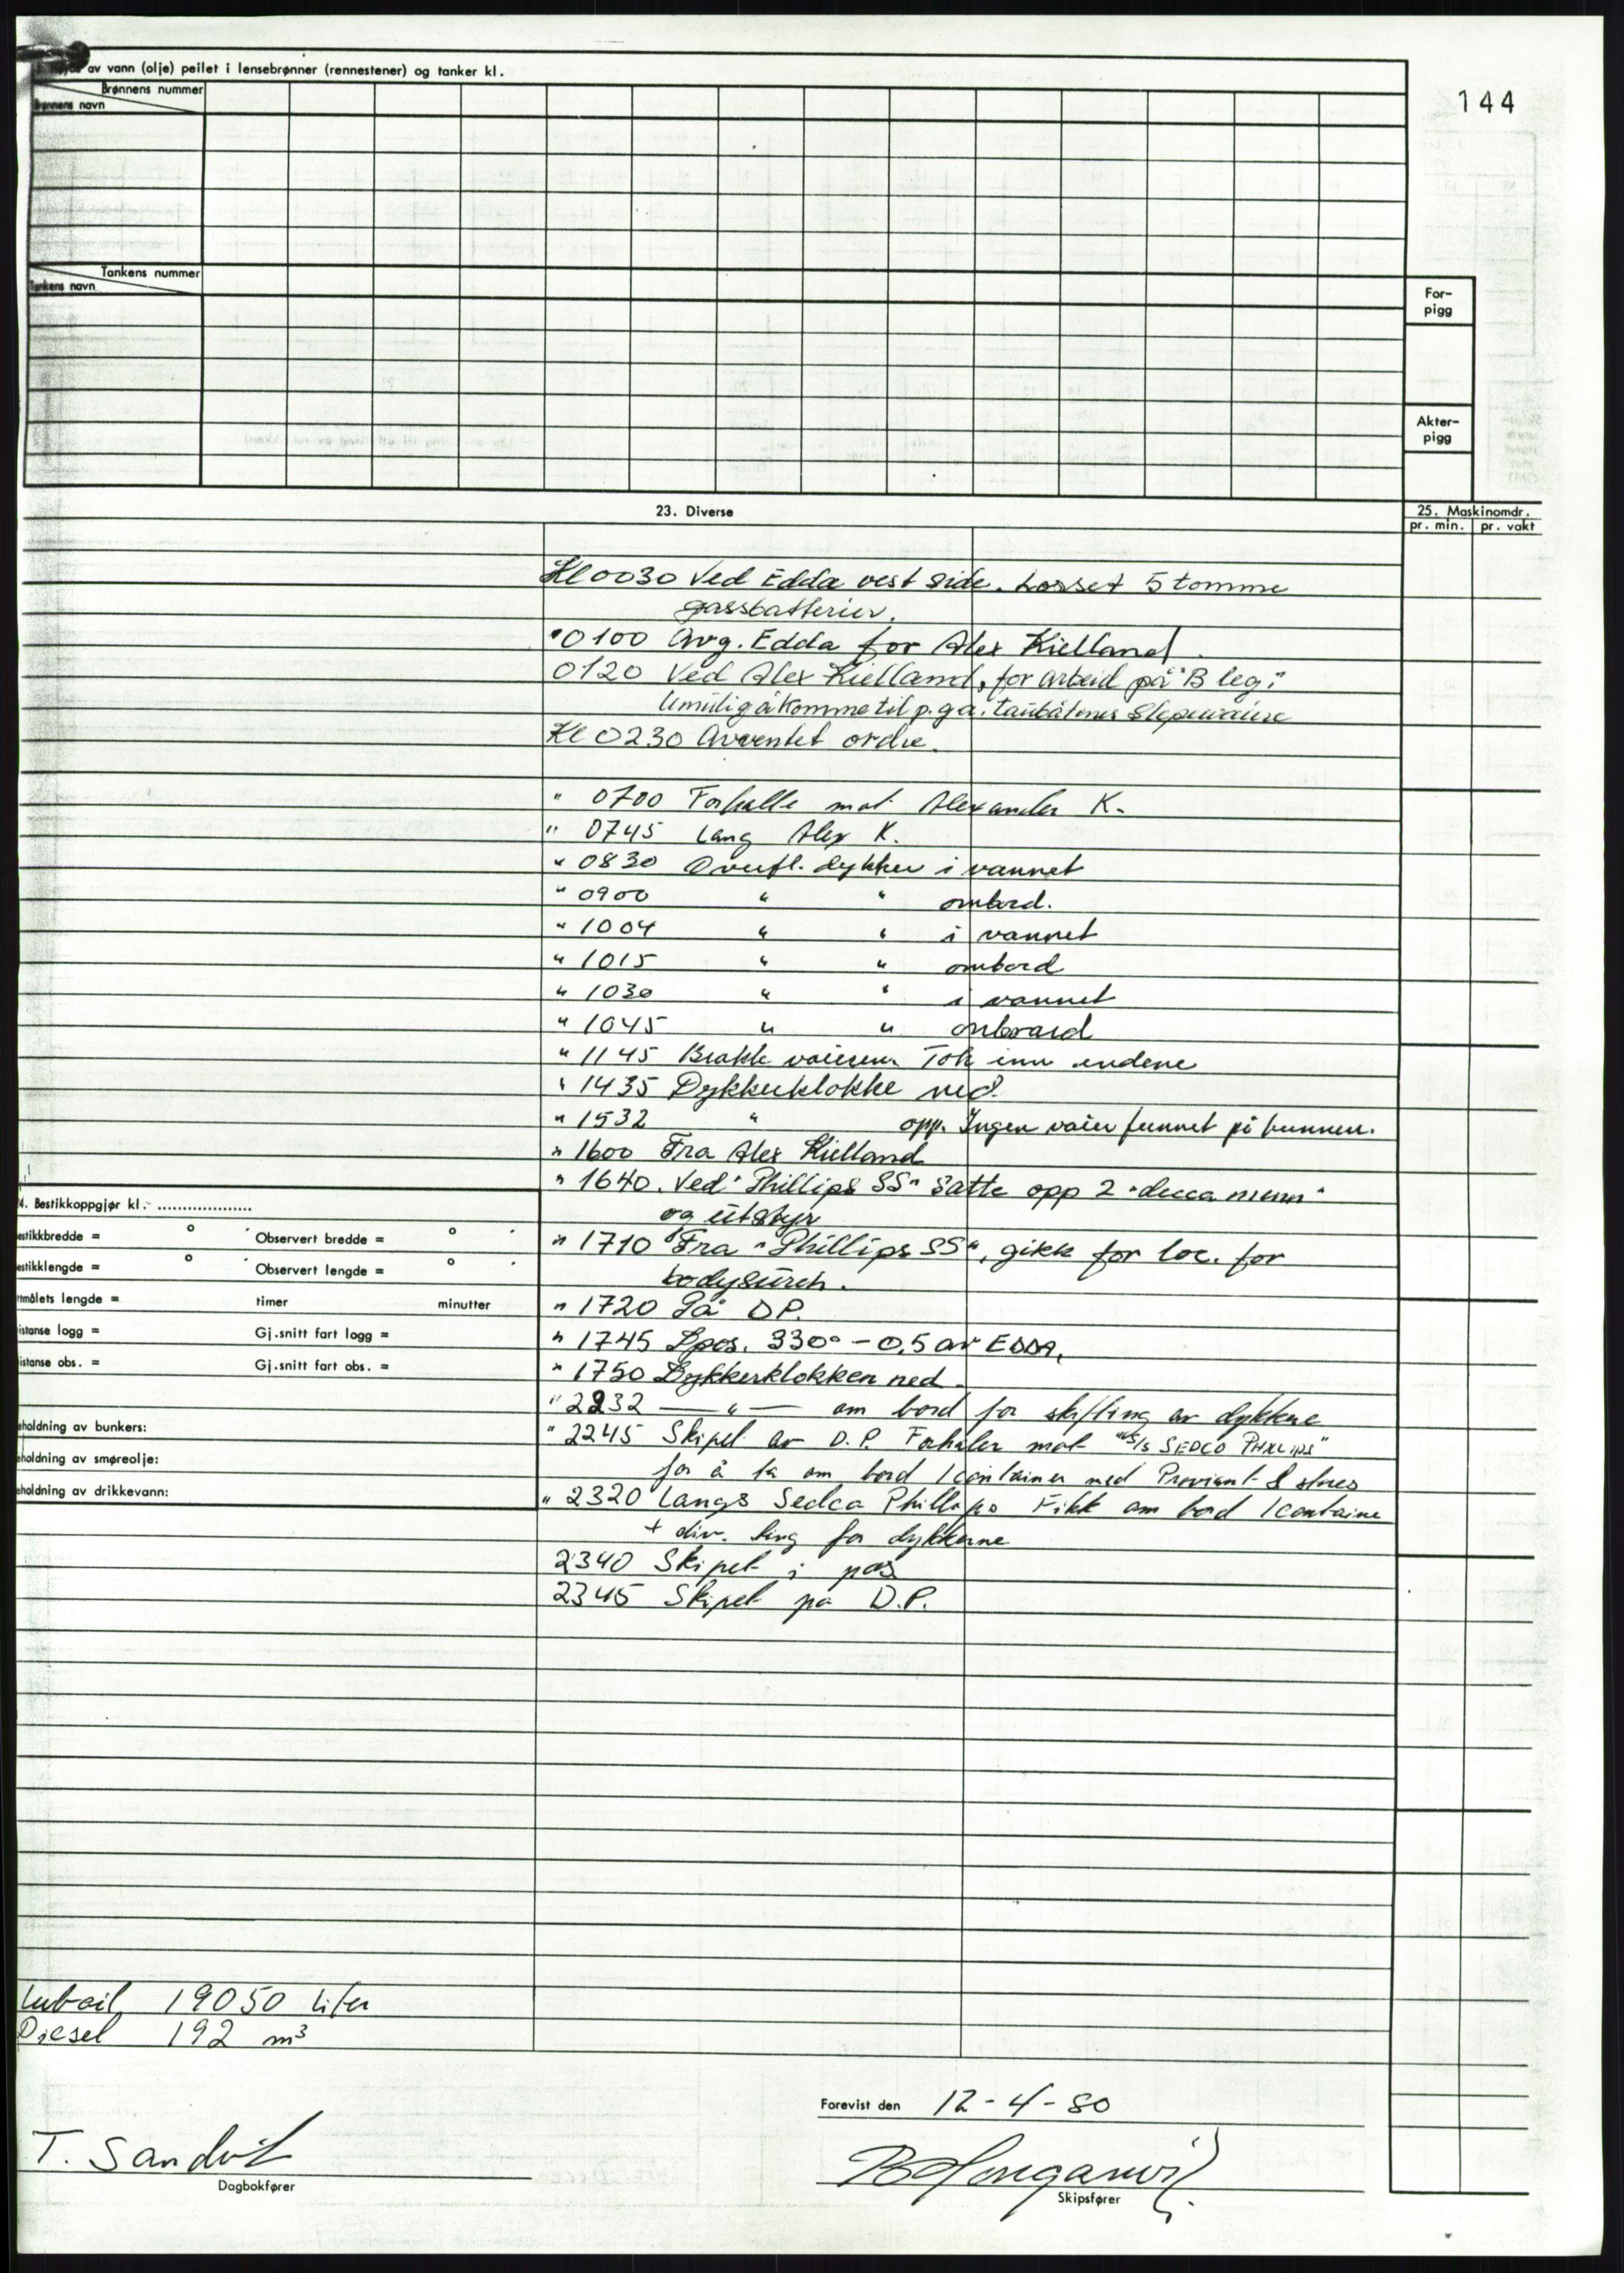 144
av vann (olje) peilet i lensebrønner (rennestener) og tanker kl.
Brønnens nummer
Brønnens navn
Tankens nummer
Tankens navn
For-
pigg
Akter-
pigg
23. Diverse
25. Maskinomdr.
pr. min. pr. vakt
Kl 0030 Ved Edda vest side. Losset 5 tomme
gassbatterier.
" 0100 Avg. Edda for Alex Kielland.
0120 Ved Alex Kielland, for arbeid på "B leg"
Umulig å komme til p.g.a. taubåtenes slepewaire
Kl 0230 Avventet ordre.
" 0700 Forhalte mot Alexander K.
" 0745 Lang Alex K.
" 0830 Overfl. dykker i vannet
" 0900 " " ombord.
" 1004 " " i vannet
" 1015 " " ombord
" 1030 " " i vannet
" 1045 " " ombord
" 1145 Brakk vaieren. Tok inn endene
" 1435 Dykkerklokke ned.
" 1532 " opp. Ingen vaier funnet på bunnen.
" 1600 Fra Alex Kielland
" 1640. Ved "Phillips SS" Satte opp 2 "decca menn"
og utstyr
" 1710 Fra "Phillips SS", gikk for loc. for
bodysurch.
" 1720 På D.P.
" 1745 Ipos. 330° - 0.5 av EDDA.
" 1750 Dykkerklokken ned.
" 2232 — " — om bord for skifting av dykkere
" 2245 Skipet av D.P. Forhaler mot "S/S SEDCO PHILLIPS"
for å ta om bord 1 container med Proviant & stores
" 2320 Langs Sedco Phillips Fikk om bord 1 containe
+ div. ting for dykkerne
2340 Skipet i pos
2345 Skipet på D.P.
4. Bestikkoppgjør kl. ...................
estikkbredde = ° ' Observert bredde = ° '
estikklengde = ° ' Observert lengde = ° '
tmålets lengde = timer minutter
istanse logg = Gj.snitt fart logg =
istanse obs. = Gj.snitt fart obs. =
eholdning av bunkers:
eholdning av smøreolje:
eholdning av drikkevann:
Luboil 19050 Liter
Diesel 192 m³
Forevist den 12-4-80
T. Sandvik
Dagbokfører
Skipsfører